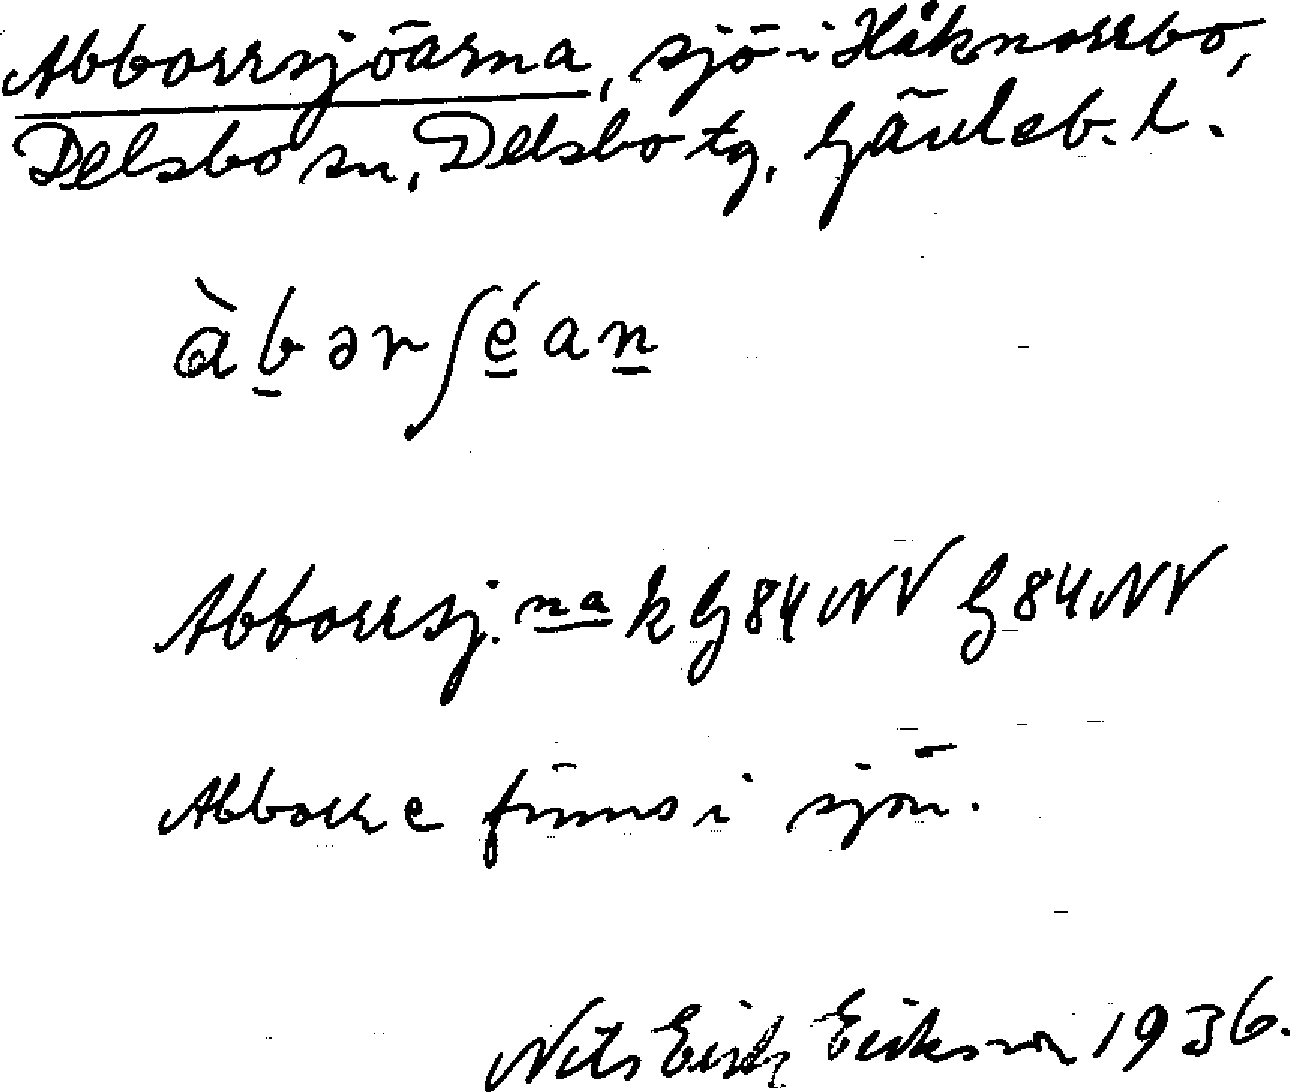 Abborrsjöarna, sjö i Håknorrbo,
Delsbo sn, Delsbo tg, Gävleb. l.
àbərʃéan
Abborrsj. na k G 84 NV G 84 NV
Abborre finns i sjön.
Nils Erik Erikson 1936.